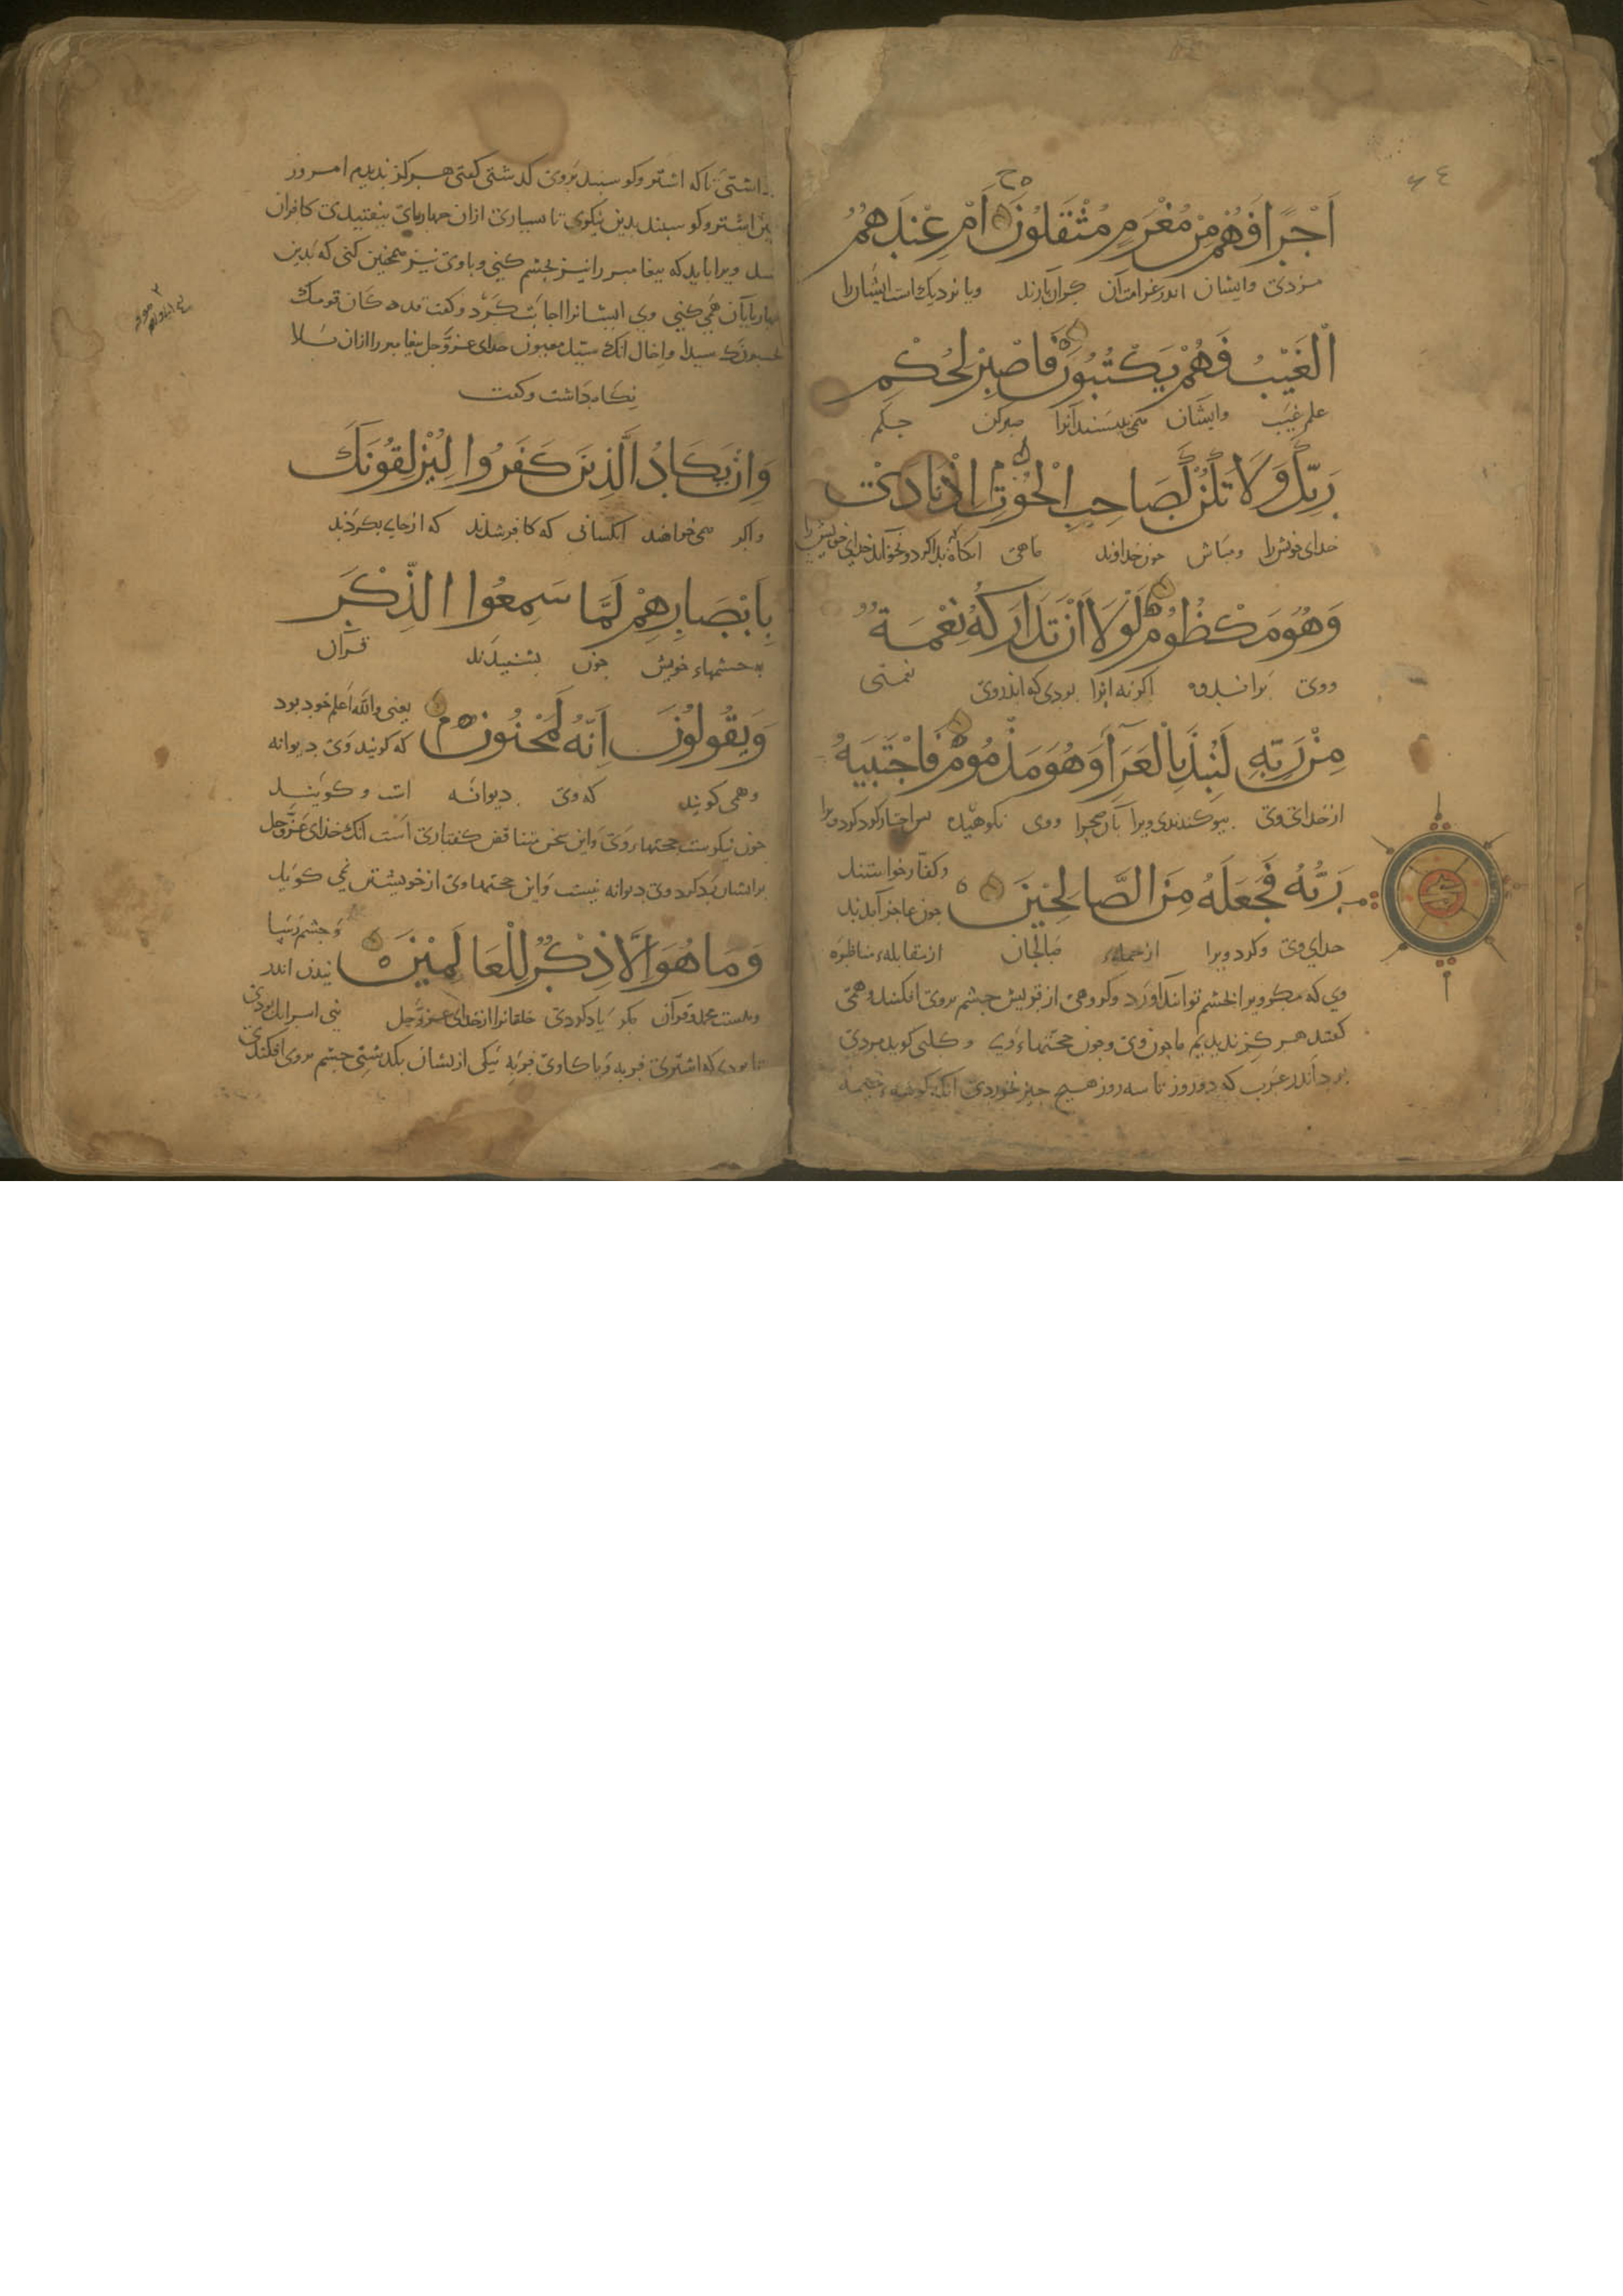 ٦٤
اَجْرًا فَهُمْ مِنْ مَغْرَمٍ مُثْقَلُوْنَ اَمْ عِنْدَهُمُ
مزدی وایشان اندر غرامت آن کران بارند ویا نزدیک است ایشان را
الْغَيْبُ فَهُمْ يَكْتُبُوْنَ فَاصْبِرْ لِحُكْمِ
علم غیب وایشان می نویسند آنرا صبر کن حکم
رَبِّكَ وَلَا تَكُنْ كَصَاحِبِ الْحُوْتِ اِذْ نَادَى
خدای خویش را ومباش چون خداوند ماهی آنکاه که ندا کرد وبخواند خدای خویش را
وَهُوَ مَكْظُوْمٌ لَوْلَا اَنْ تَدَارَكَهُ نِعْمَةٌ
ووی براندوه اکر نه آنرا بودی کواندروی نعمتی
مِنْ رَبِّهِ لَنُبِذَ بِالْعَرَآءِ وَهُوَ مَذْمُوْمٌ فَاجْتَبٰيهُ
از خدای وی بیوکندندی ویرا بآن صحرا ووی نکوهیده پس اختیار کرد ویرا
رَبُّهُ فَجَعَلَهُ مِنَ الصَّالِحِيْنَ
وکفار خواستند
چون عاجز آمدند
خدای وی وکرد ویرا از جمله صالحان از مقابله مناظره
وی که مکر ویرا بخشم توانند آورد وکروهی از قریش چشم بروی افکندند وهمی
کفتند هرکز ندیدیم ما چون وی وچون حجتهاء وی وکلبی کوید مردی
بود اندر عرب که دو روز تا سه روز هیچ چیز نخوردی آنکه کوشه خیمه
داشتی تا که اشتر وکوسبند بروی کذشتی کفتی هرکز ندیدم امروز
این اشتر وکوسبند بدین نیکوی تا بسیاری ازان چهاربای بیفتیدی کافران
ویرا باید که بیغامبر را نیز بچشم کنی وباوی نیز همچنین کنی که بدین
چهاربایان همی کنی وی ایشانرا اجابت کرد وکفت قد کان قومک
یحسبونک سیدا واخال انک سید معیون خدای عزوجل بیغامبر را ازان بلا
نکاه داشت وکفت
وَاِنْ يَكَادُ الَّذِيْنَ كَفَرُوا لَيُزْلِقُوْنَكَ
واکر می خواهند آنکسانی که کافر شدند که از جای بکردند
بِاَبْصَارِهِمْ لَمَّا سَمِعُوا الذِّكْرَ
به چشمهاء خویش چون بشنیدند قرآن
وَيَقُولُوْنَ اِنَّهُ لَمَجْنُوْنٌ
یعنی والله اعلم خود بود
که کویند وی دیوانه
وهمی کویند که وی دیوانه است وکویند
چون نیکوست حجتها وی واین سخن متناقض کفتاری است آنک خدای عزوجل
برایشان رد کرد وی دیوانه نیست واین حجتها وی از خویشتن نمی کوید
وَمَا هُوَ اِلَّا ذِكْرٌ لِلْعَالَمِيْنَ
وچشم رسا
نیدن اندر
ونیست محمد وقرآن مکر یاد کردی خلقانرا از خدای عزوجل بنی اسرایل بودی
تا بودی که اشتری فربه ویا کاوی فربه یکی از یشان بکذشتی چشم بروی افکندی